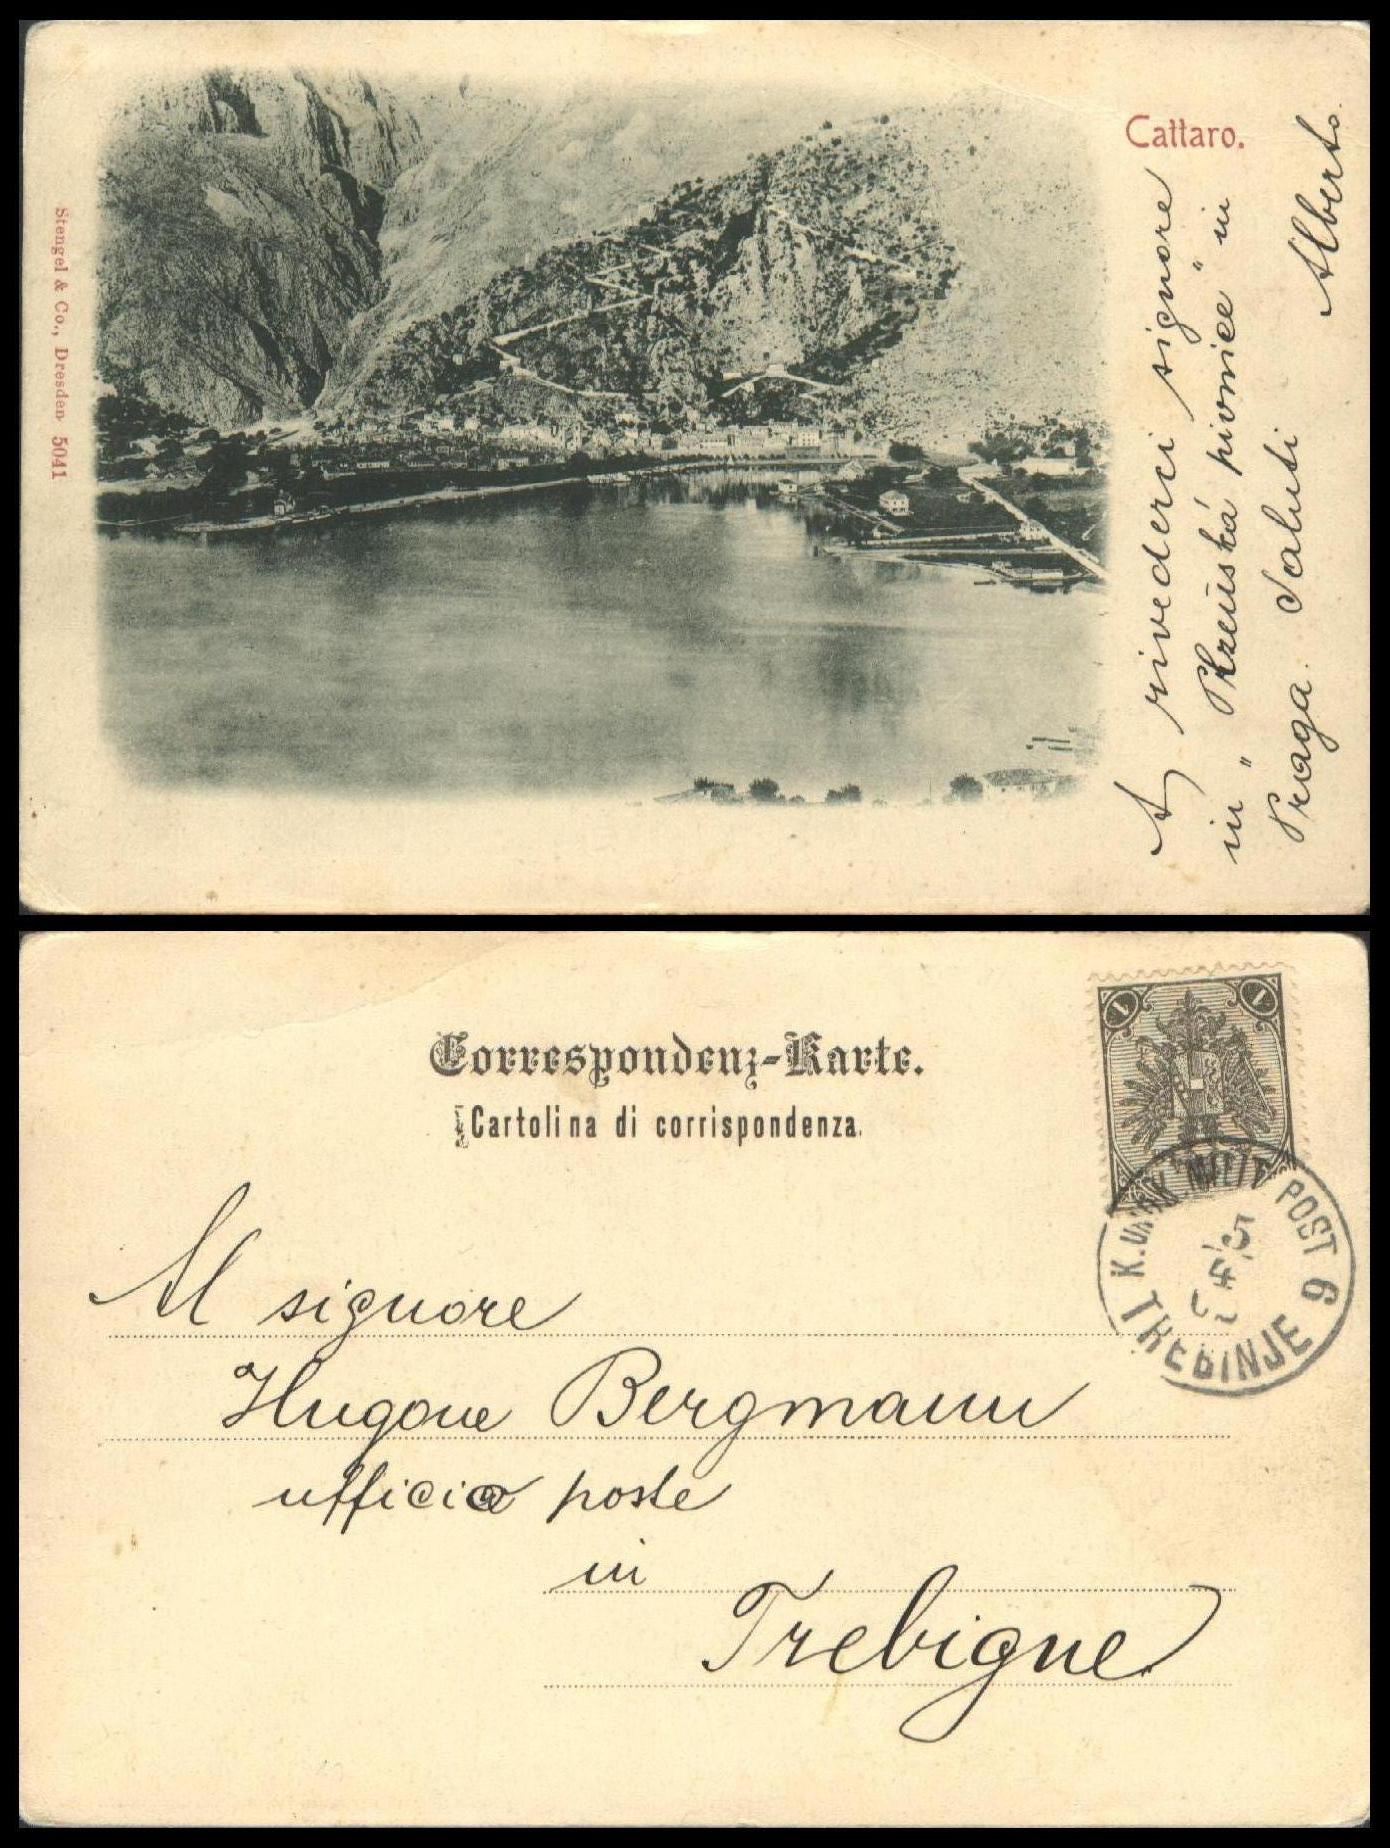 Cattaro.
Stengel & Co., Dresden 5041
A rivederci signore
in „Plzeňská pivnice" in
Praga. Saluti Alberto.
Correspondenz-Karte.
Cartolina di corrispondenza.
1 1
K. UND K. MILIT. POST 9
TREBINJE
Al signore
Hugone Bergmann
ufficio poste
in
Trebigne